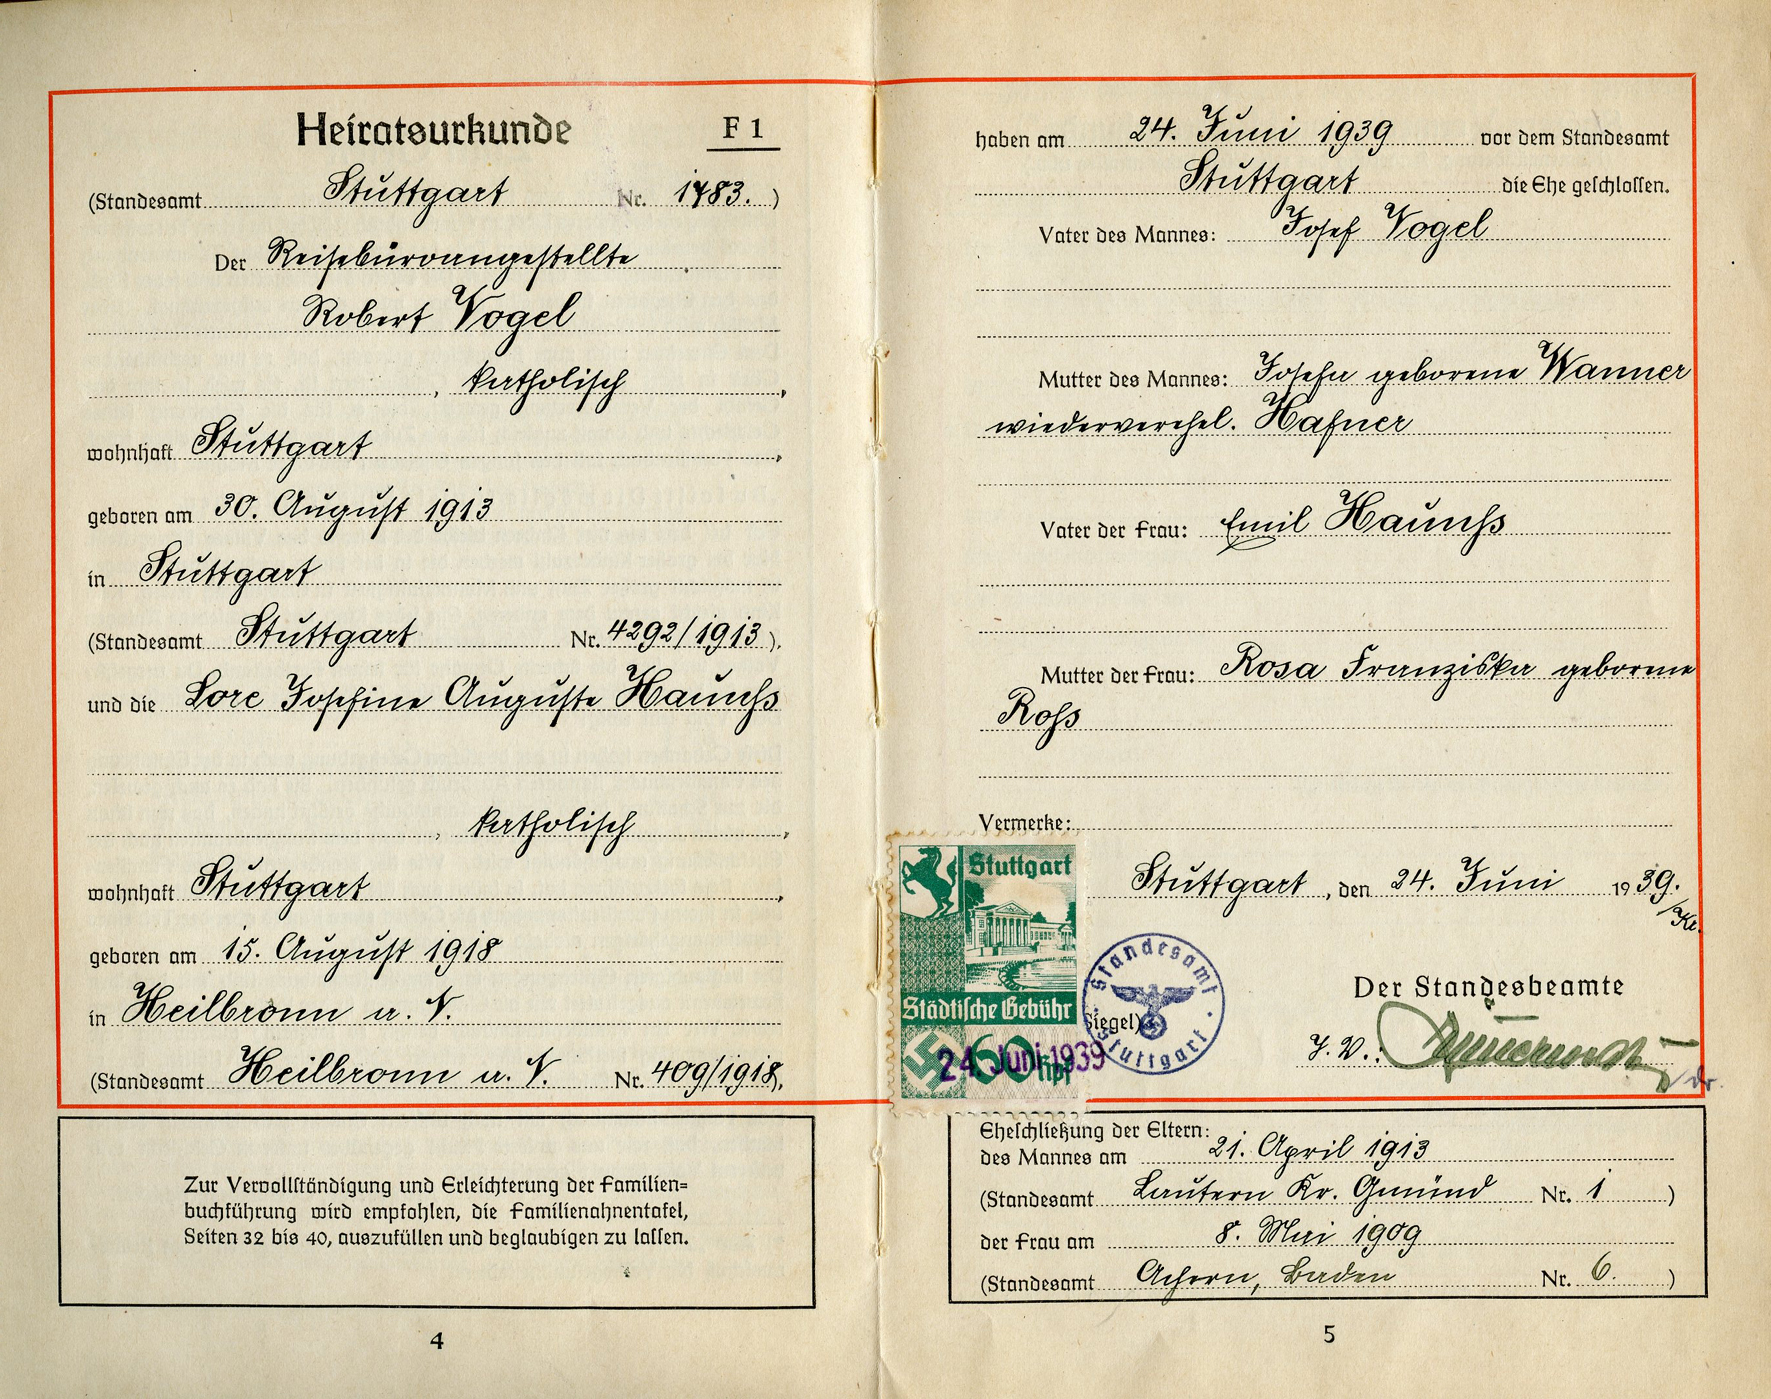 Heiratsurkunde F 1
(Standesamt Stuttgart Nr. 1483.)
Der Reisebüroangestellte
Robert Vogel
, katholisch,
wohnhaft Stuttgart,
geboren am 30. August 1913
in Stuttgart
(Standesamt Stuttgart Nr. 4292/1913).
und die Lore Josefine Auguste Haunß
, katholisch,
wohnhaft Stuttgart,
geboren am 15. August 1918
in Heilbronn a. N.
(Standesamt Heilbronn a. N. Nr. 409/1918),
Zur Vervollständigung und Erleichterung der Familien=
buchführung wird empfohlen, die Familienahnentafel,
Seiten 32 bis 40, auszufüllen und beglaubigen zu lassen.
4
haben am 24. Juni 1939 vor dem Standesamt
Stuttgart die Ehe geschlossen.
Vater des Mannes: Josef Vogel
Mutter des Mannes: Josefa geborene Wanner
wiederverehel. Hafner
Vater der Frau: Emil Haunß
Mutter der Frau: Rosa Franziska geborene
Roß
Vermerke:
Stuttgart, den 24. Juni 1939.
/Kr.
Stuttgart
Städtische Gebühr
60 Rpf
24. Juni 1939
Siegel)
Standesamt
Stuttgart
Der Standesbeamte
J. V.:
Eheschließung der Eltern:
des Mannes am 21. April 1913
(Standesamt Lautern Kr. Gmünd Nr. 1)
der Frau am 8. Mai 1909
(Standesamt Achern, Baden Nr. 6.)
5